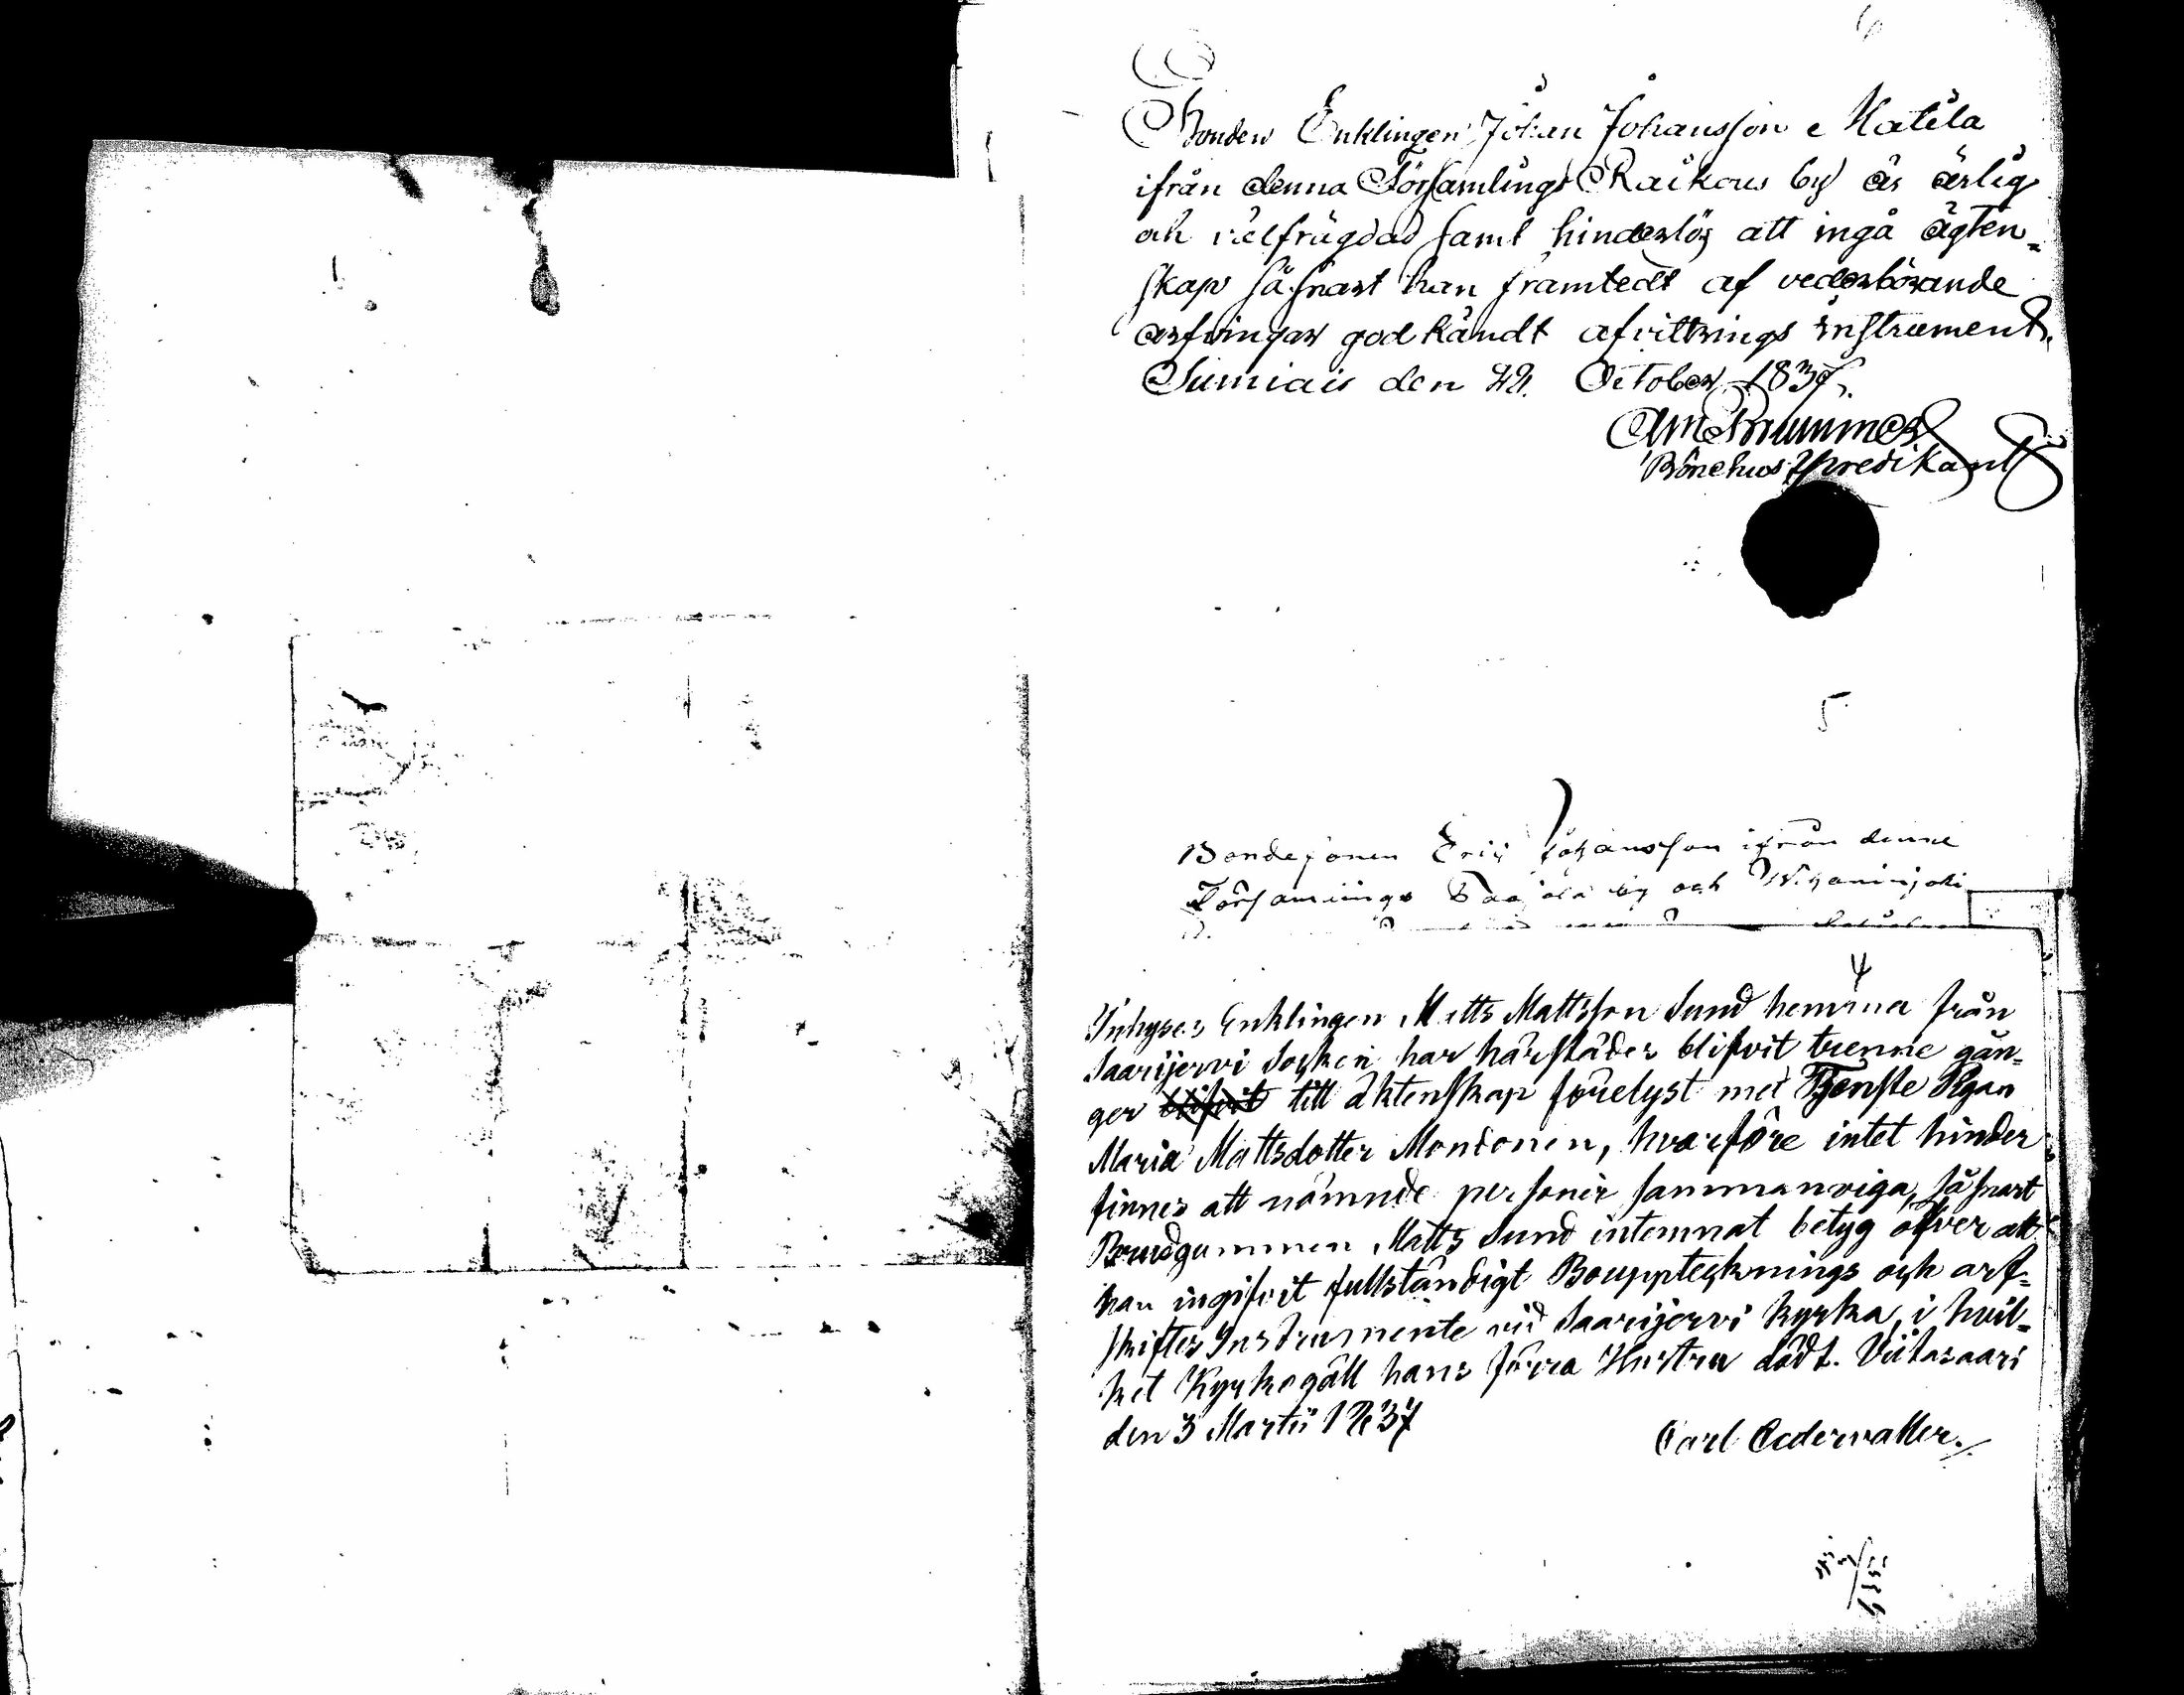 6
Bonden Enklingen Johan Johansson Matila
ifrån denna Församlings Raikous by är ärlig
och välfrägdad samt hinderlös att ingå ägten=
skap så snart han framtedt af vederbörande
arfvingar godkändt afvittrings instrument.
Sumiais den 22 October 1837.
Brummer
Bönehus Predikant
5
Bondesonen Eric Johansson ifrån denne
Församlings by och
4
Inhyses Enklingen Matts Mattsson Sund hemma från
Saarijervi Socken har härstädes blifvit trenne gån=
ger blifvit till äktenskap förelyst med Tjenste Pigan
Maria Mattsdotter Montonen, hvarföre intet hinder
finnes att nämnde personer sammanviga, så snart
Brudgummen Matts Sund intemnat betyg öfver att
han ingifvit fullständigt Bouppteknings och arf=
skiftes Instrumente vid Saarijervi kyrka, i hvil=
ket Kyrkogäll hans förra Hustru dödt. Viitasaari
den 3 Martii 1837
Carl Cedervaller.